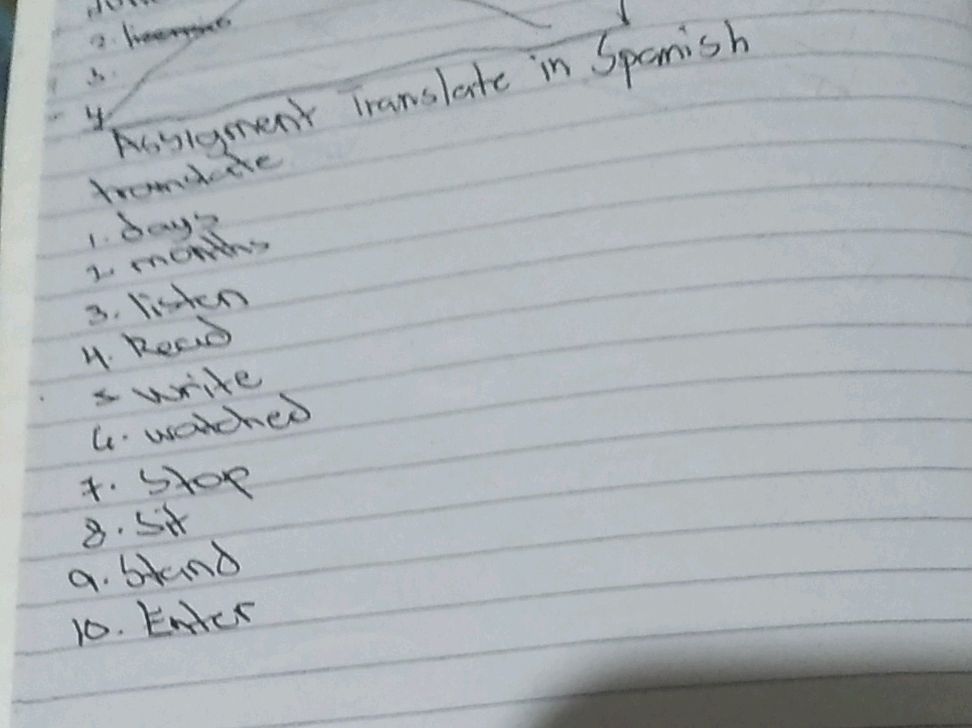 2.
3.
4.
Assigment Translate in Spanish
translate
1. days
2. months
3. listen
4. Read
5 write
6. watched
7. Stop
8. Sit
9. Stand
10. Enter